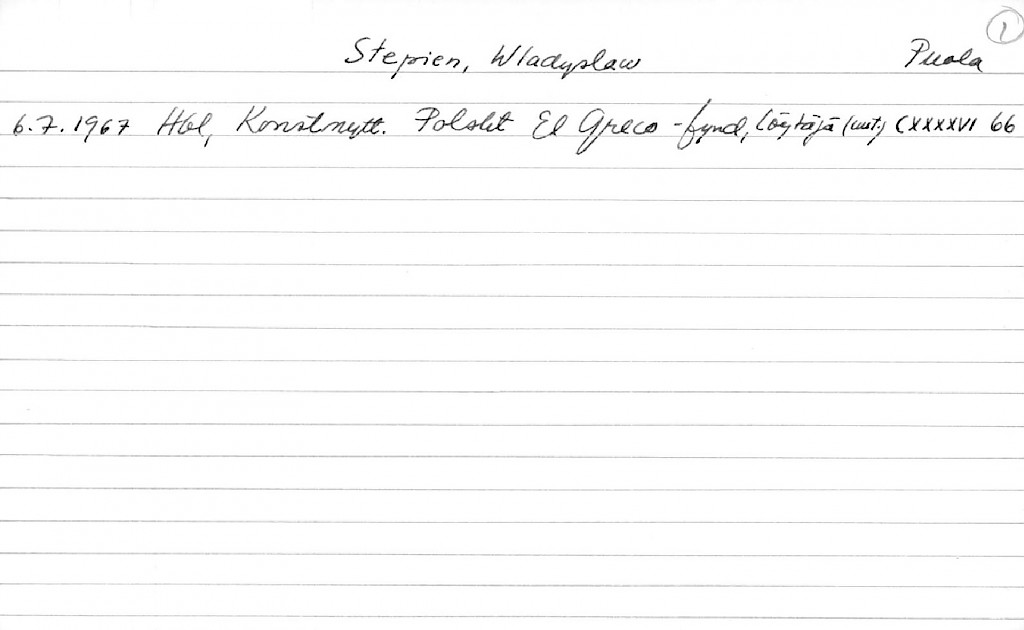 1
Stepien, Wladyslaw Puola
6.7.1967 Hbl, Konstnytt. Polskt El Greco-fynd, löytäjä (uut.) CXXXXVI 66